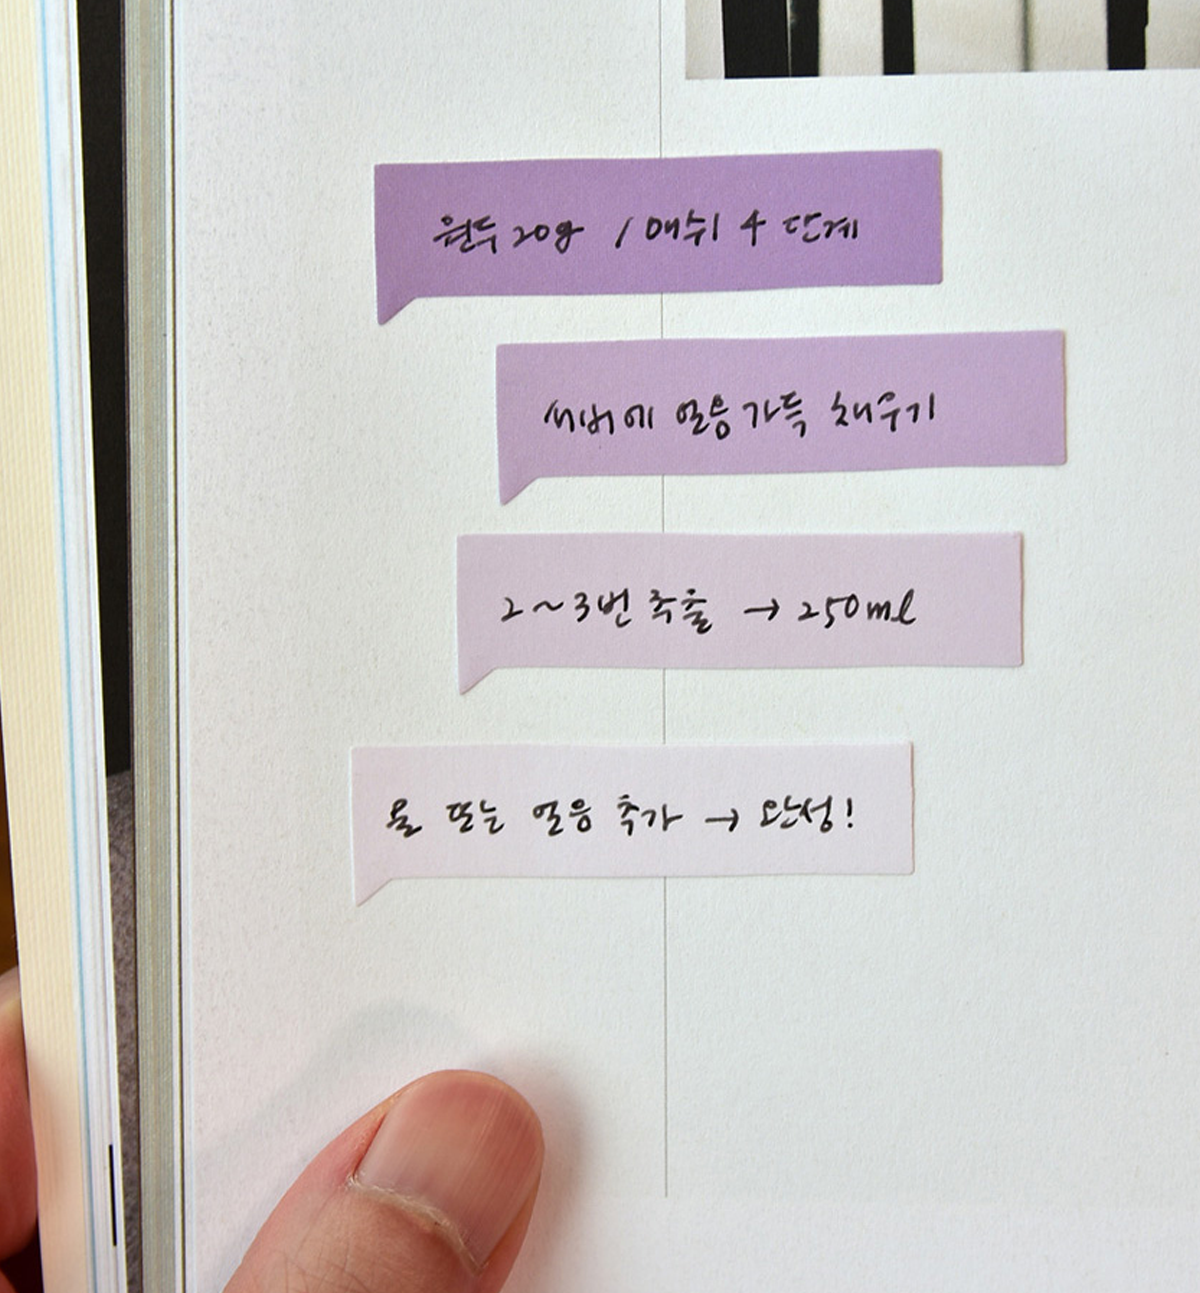 원두 20g / 매쉬 4 단계
서버에 얼음 가득 채우기
2~3번 추출 → 250ml
물 또는 얼음 추가 → 완성!